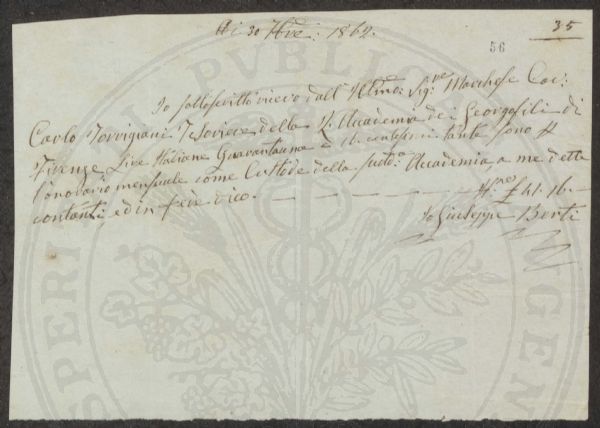 Ai 30 9bre: 1862.
35
56
Io sottoscritto ricevo dall' Illmo: Sigre Marchese Cav:
Carlo Torrigiani Tesoriere della R. Accademia dei Georgofili di
Firenze Lire Italiane Quarantauna e 16 centesimi tante sono p
l'onorario mensuale come Custode della sudda Accademia, a me dette
contanti, ed in fede dico. £ 41. 16. -
Io Giuseppe Berti
PROSPERITATI PVBLICAE AVGENDAE